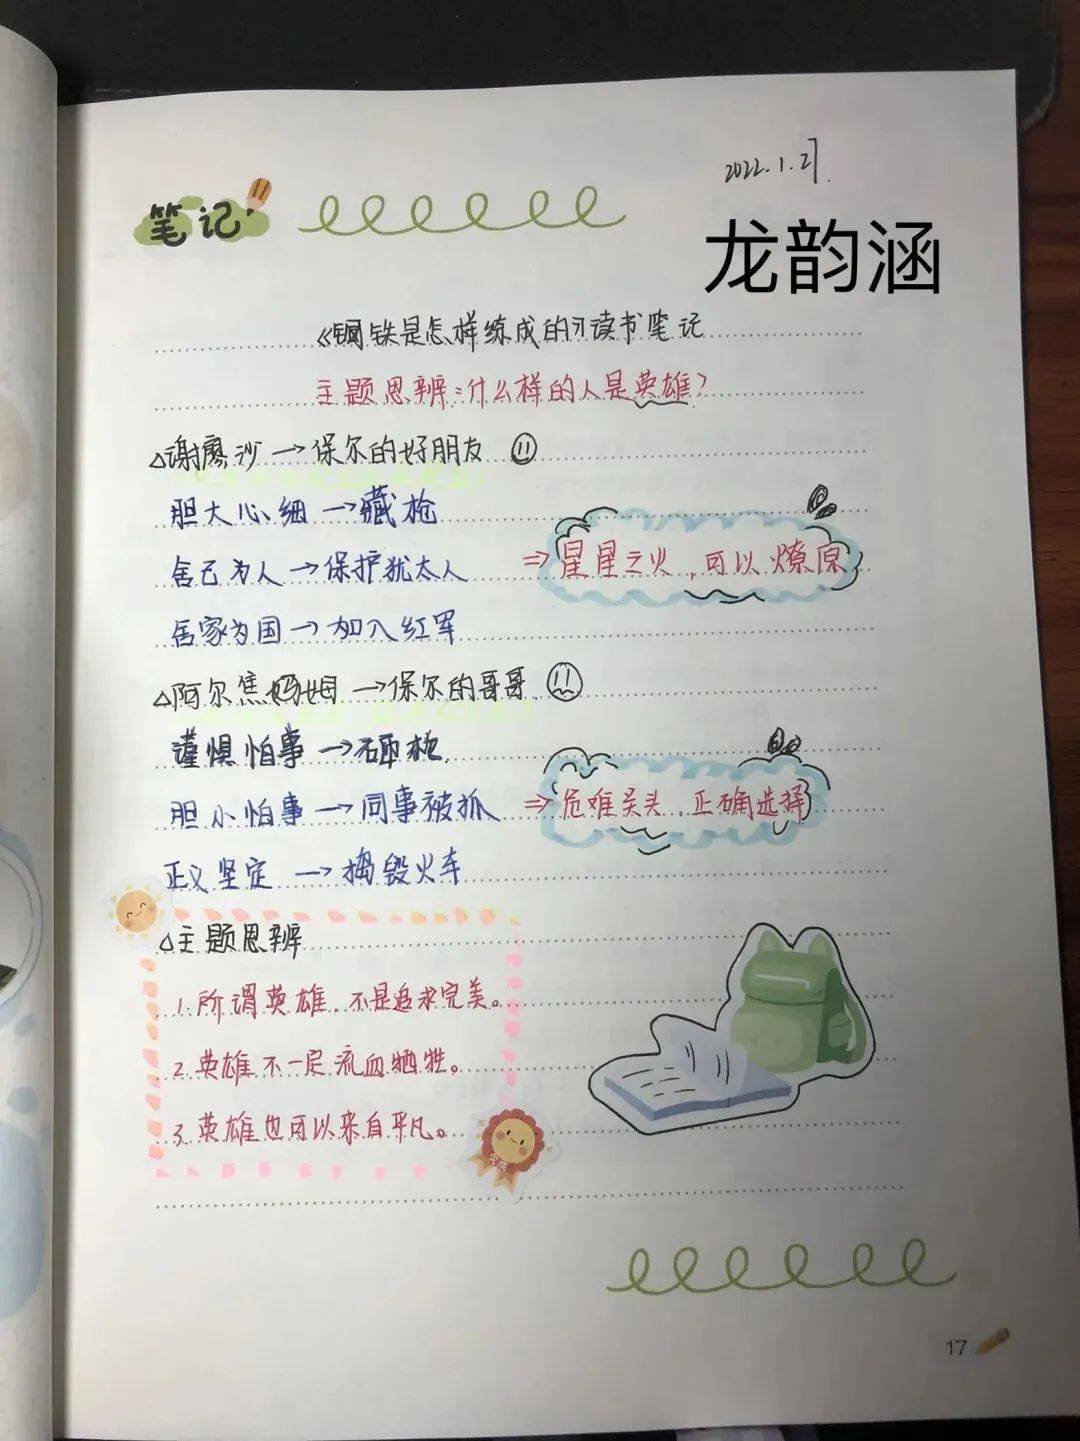 2022.1.27.
笔记
龙韵涵
《钢铁是怎样练成的》读书笔记
主题思辨:什么样的人是英雄?
△谢廖沙→保尔的好朋友
胆大心细→藏枪
舍己为人→保护犹太人
舍家为国→加入红军
⇒星星之火,可以燎原
△阿尔焦妈姆→保尔的哥哥
谨惧怕事→砸枪
胆小怕事→同事被抓
正义坚定→捣毁火车
⇒危难关头,正确选择
△主题思辨
1.所谓英雄,不是追求完美。
2.英雄不一定流血牺牲。
3.英雄也可以来自平凡。
17